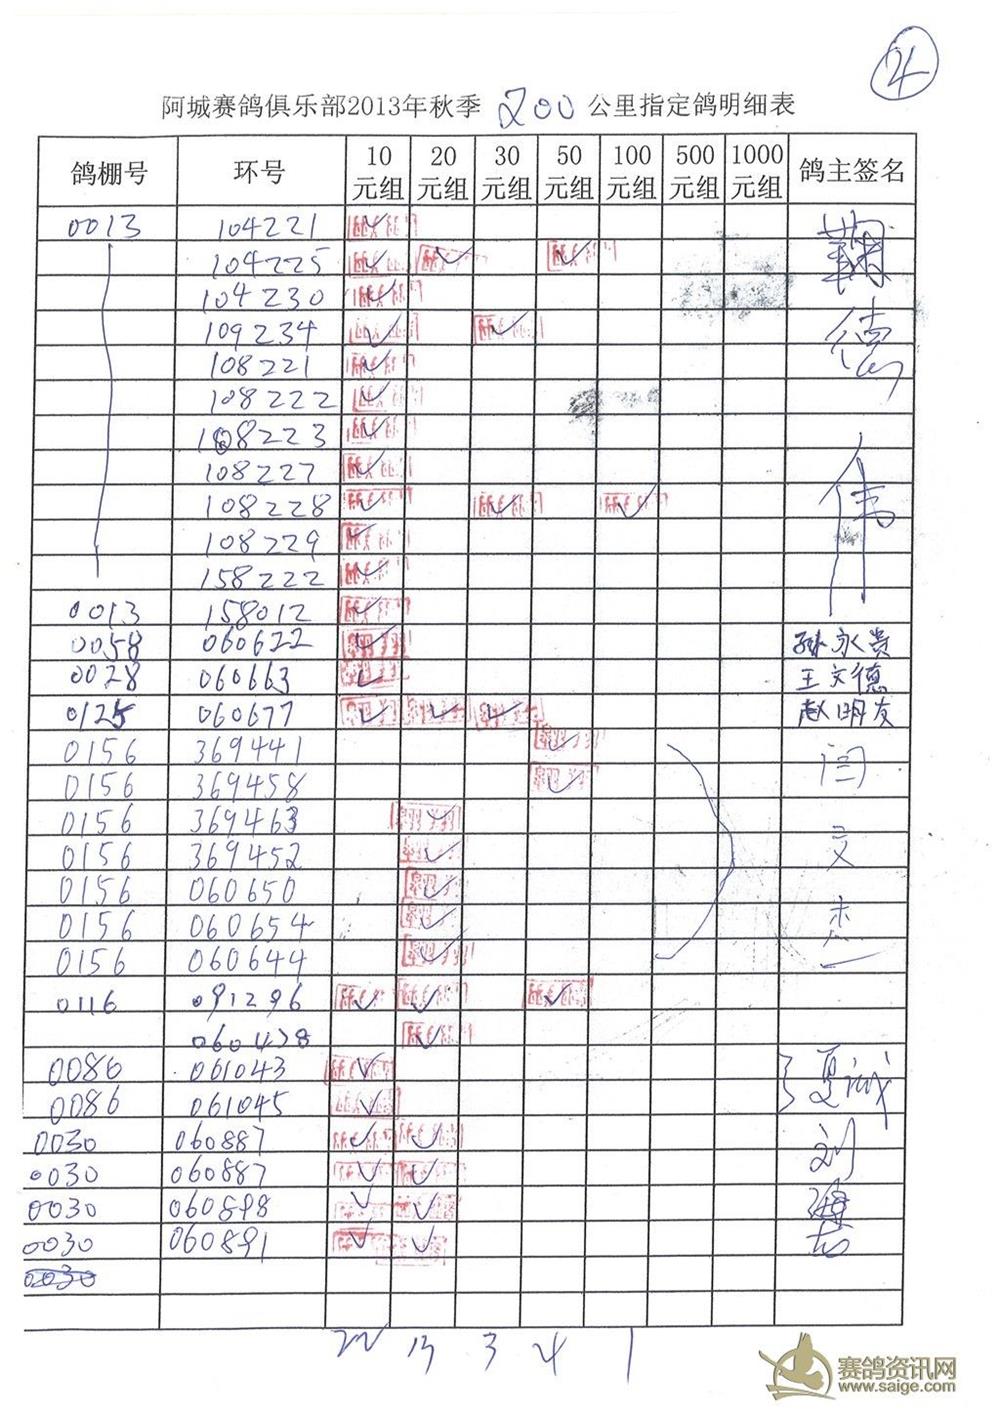 4
阿城赛鸽俱乐部2013年秋季 200 公里指定鸽明细表
鸽棚号 环号 10元组 20元组 30元组 50元组 100元组 500元组 1000元组 鸽主签名
0013 104221 ✓
104225 ✓ ✓ ✓
104230 ✓
109234 ✓ ✓
108221 ✓
108222 ✓
108223 ✓
108227 ✓
108228 ✓ ✓ ✓
108229 ✓
158222 ✓
德伟
0013 158012 ✓
0058 060622 ✓ 孙永贵
0028 060663 ✓ 王文德
0125 060677 ✓ ✓ ✓ 赵明友
0156 369441 ✓ 闫文杰
0156 369458 ✓
0156 369463 ✓
0156 369452 ✓
0156 060650 ✓
0156 060654 ✓
0156 060644 ✓
0116 091296 ✓ ✓ ✓
060438 ✓
0086 061043 ✓ 夏诚
0086 061045 ✓
0030 060887 ✓ ✓ 刘
0030 060887 ✓ ✓
0030 060898 ✓ ✓
0030 060891 ✓ ✓
0030
22 13 3 4 1
赛鸽资讯网
www.saige.com